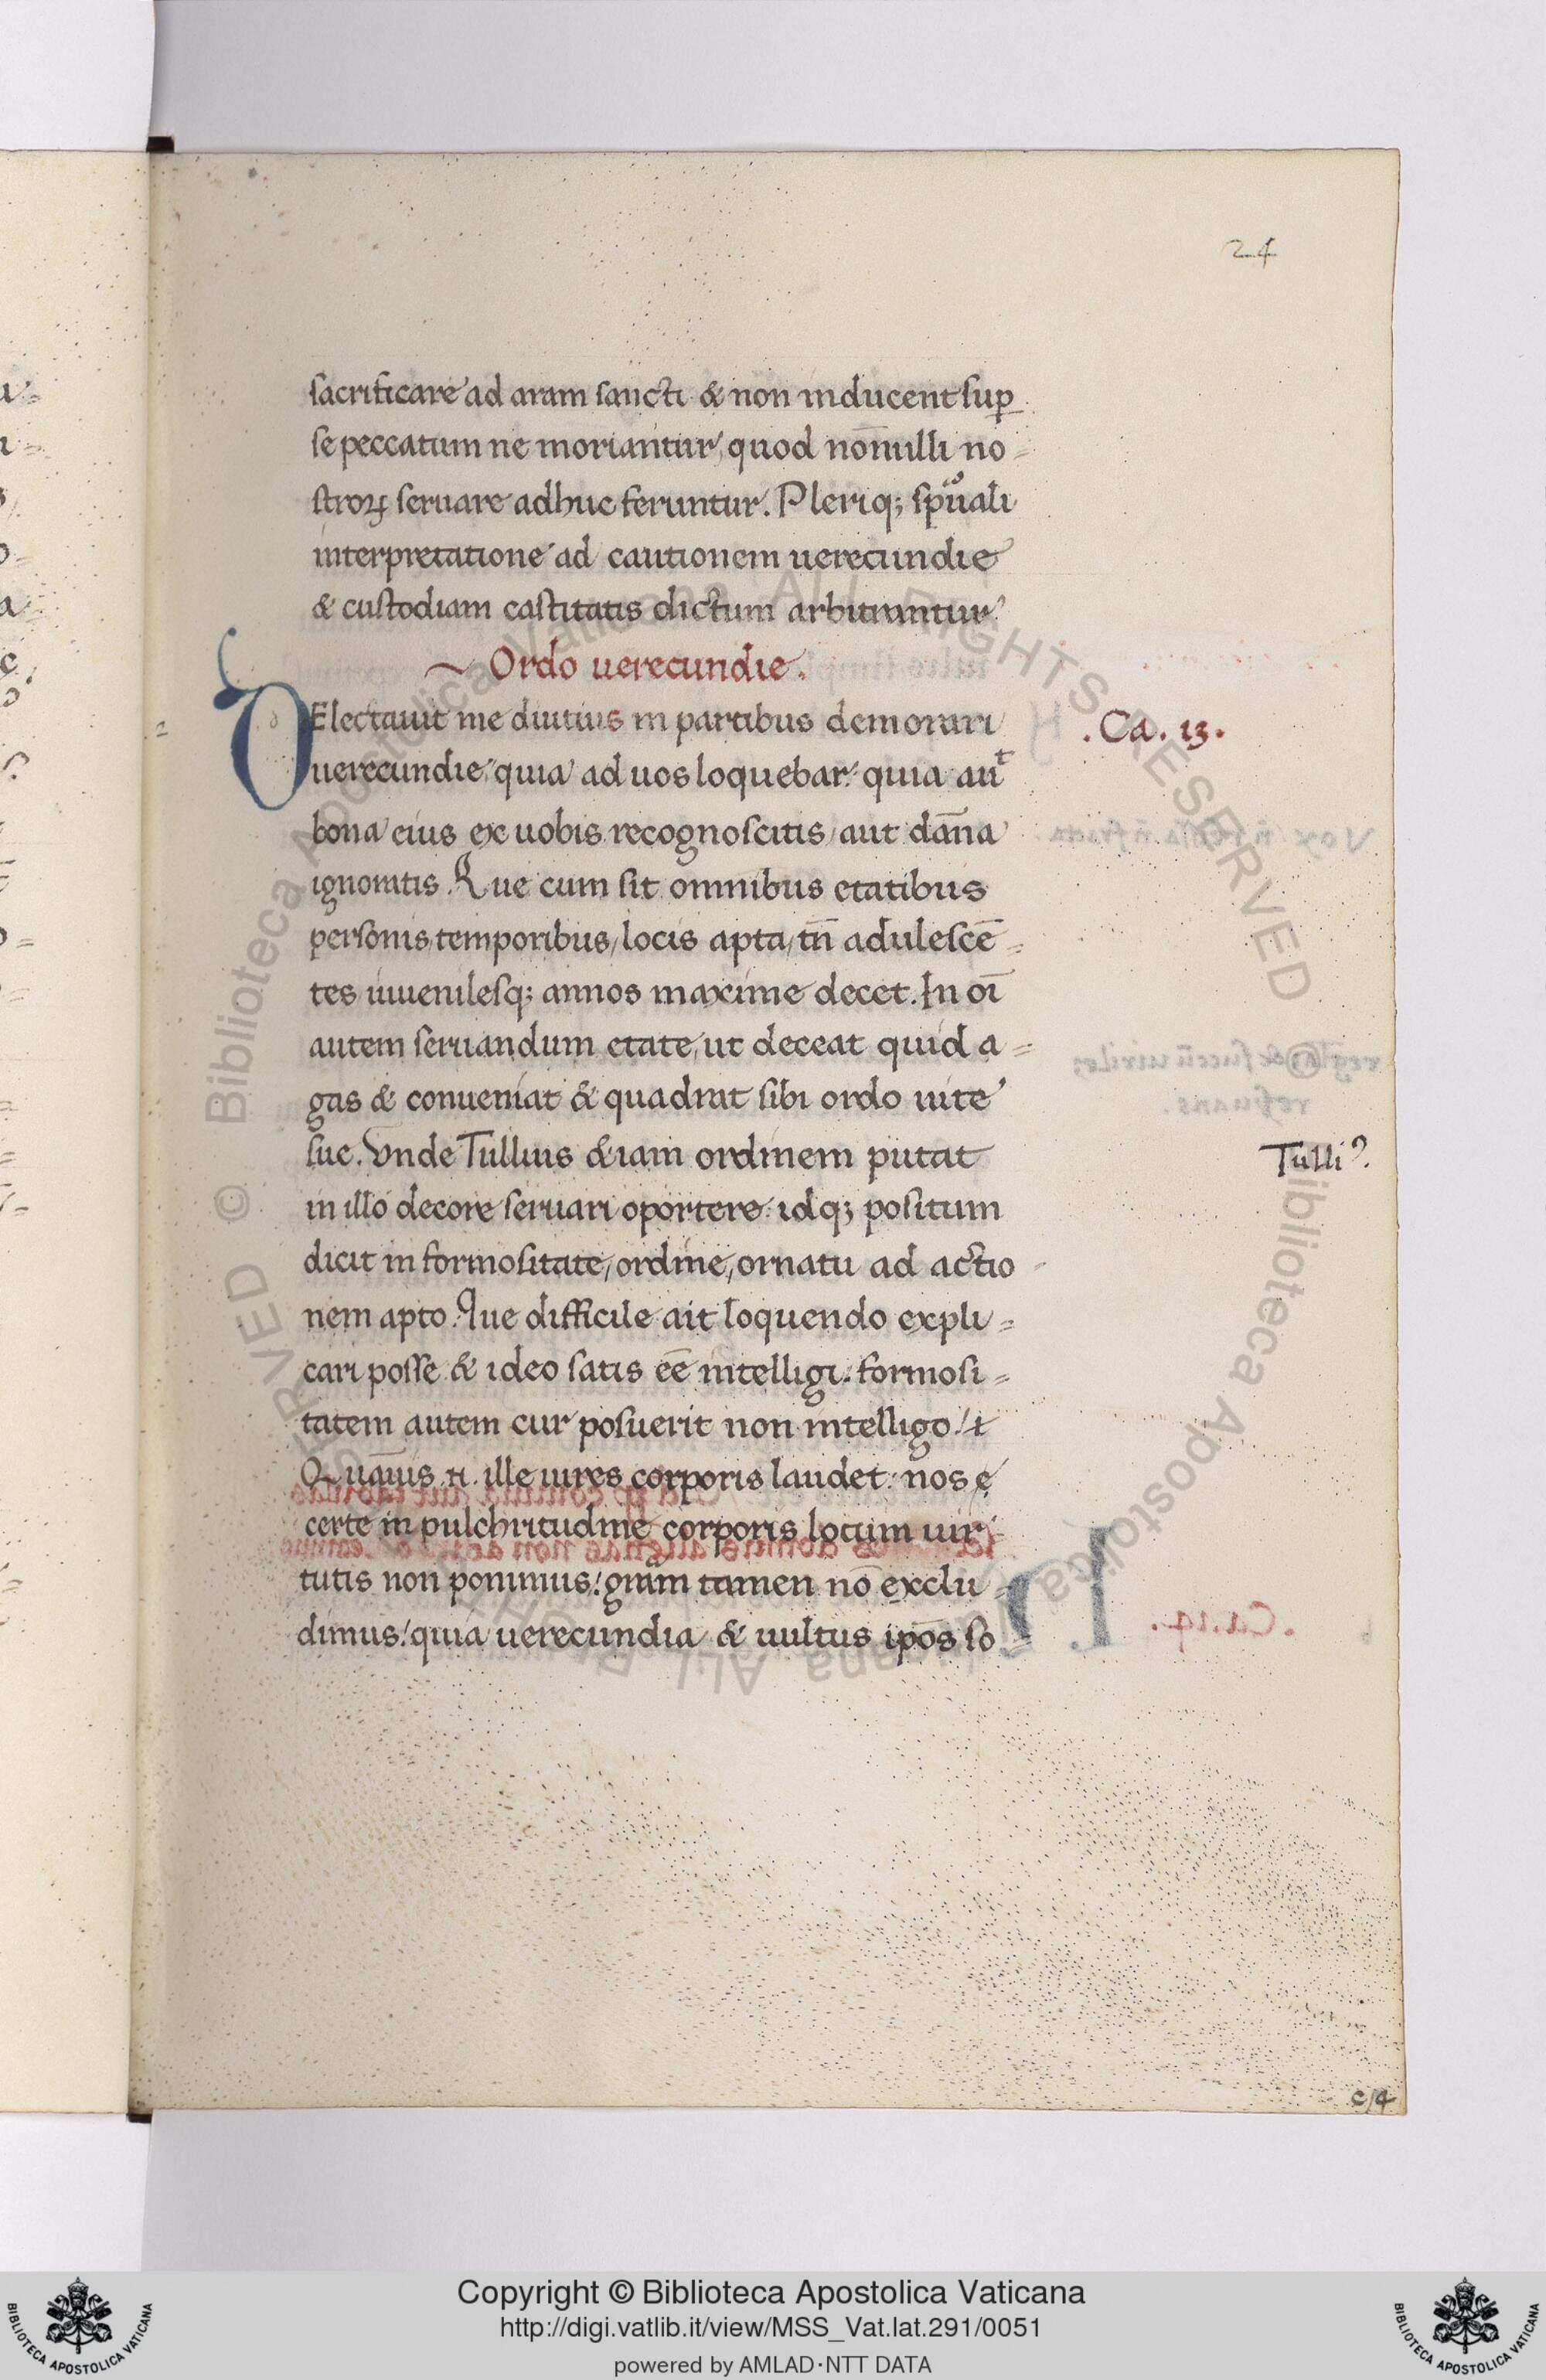 24
sacrificare ad aram sancti & non inducent sup̱
se peccatum ne moriantur, quod nōnulli no-
stroꝝ seruare adhuc feruntur. Pleriq; sp̄uali
interpretatione ad cautionem uerecundie
& custodiam castitatis dictum arbitrantur.
~ Ordo uerecundie.
DElectauit me diutius in partibus demorari
.Ca. 13.
uerecundie, quia ad uos loquebar: quia aūt
bona eius ex uobis recognoscitis, aut dāna
ignoratis. Que cum sit omnibus etatibus
personis, temporibus, locis apta, tn̄ adulescē-
tes iuuenilesq; annos maxime decet. In oī
autem seruandum etate, ut deceat quid a-
gas & conueniat & quadrat sibi ordo uite
sue. Vnde Tullius &iam ordinem putat
Tulliꝰ.
in illo decore seruari oportere: idq; positum
dicit in formositate, ordine, ornatu ad actio-
nem apto. Que difficile ait loquendo expli-
cari posse & ideo satis eē intelligi. formosi-
tatem autem cur posuerit non intelligo!
Quāuis ille uires corporis laudet: nos
certe in pulchritudine corporis locum uir-
tutis non ponimus! grām tamen nō exclu-
dimus! quia uerecundia & uultus ipōs so
Copyright © Biblioteca Apostolica Vaticana
http://digi.vatlib.it/view/MSS_Vat.lat.291/0051
powered by AMLAD·NTT DATA
BIBLIOTECA APOSTOLICA VATICANA
BIBLIOTECA APOSTOLICA VATICANA